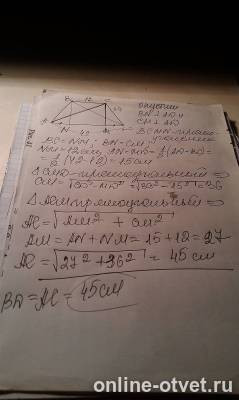 B 12 C
39
A N 42 M D
опустим
BN ⊥ AD и
CM ⊥ AD
BCMN - прямо-
угольник
BC = NM; BN = CM
NM = 12 см, AN = MD = ½(AD - BC) =
= ½(42-12) = 15 см
△ CMD - прямоугольный ⇒
CM = √
△ ACM прямоугольный ⇒
AC = √AM² + CM²
AM = AN + NM = 15 + 12 = 27
AC = √27² + 36² = 45 см
BD = AC = 45 см
online-otvet.ru